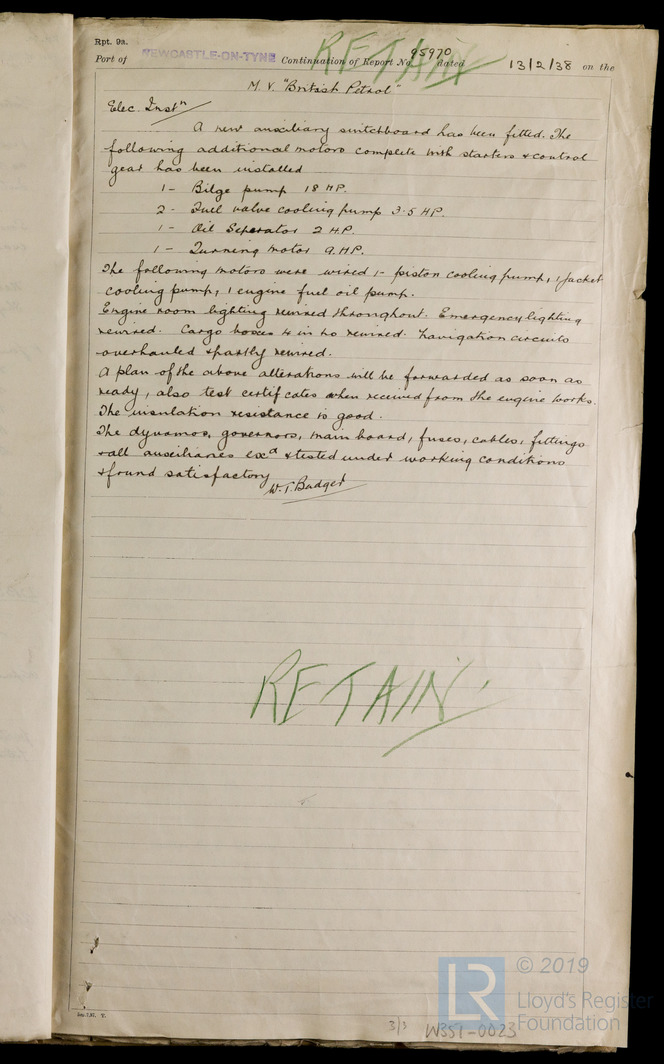 Rpt. 9a.
RETAIN
Port of NEWCASTLE-ON-TYNE Continuation of Report No. 95970 dated 13/2/38 on the
M. V. "British Petrol"
Elec. Instⁿ
A new auxiliary switchboard has been fitted. The
following additional motors complete with starters & control
gear has been installed
1- Bilge pump 18 HP.
2- Fuel valve cooling pump 3·5 HP.
1- Oil Seperator 2 HP.
1- Turning motor 9 HP.
The following motors were wired 1- piston cooling pump, 1 jacket
cooling pump, 1 engine fuel oil pump.
Engine room lighting rewired throughout. Emergency lighting
rewired. Cargo boxes 4 in no rewired. Navigation circuits
overhauled & partly rewired.
A plan of the above alterations will be forwarded as soon as
ready, also test certificates when received from the engine works.
The insulation resistance is good.
The dynamos, governors, main board, fuses, cables, fittings
& all auxiliaries exᵈ & tested under working conditions
& found satisfactory
W. T. Badger
RETAIN
LR © 2019
Lloyd's Register
Foundation
3/3 W351-0023